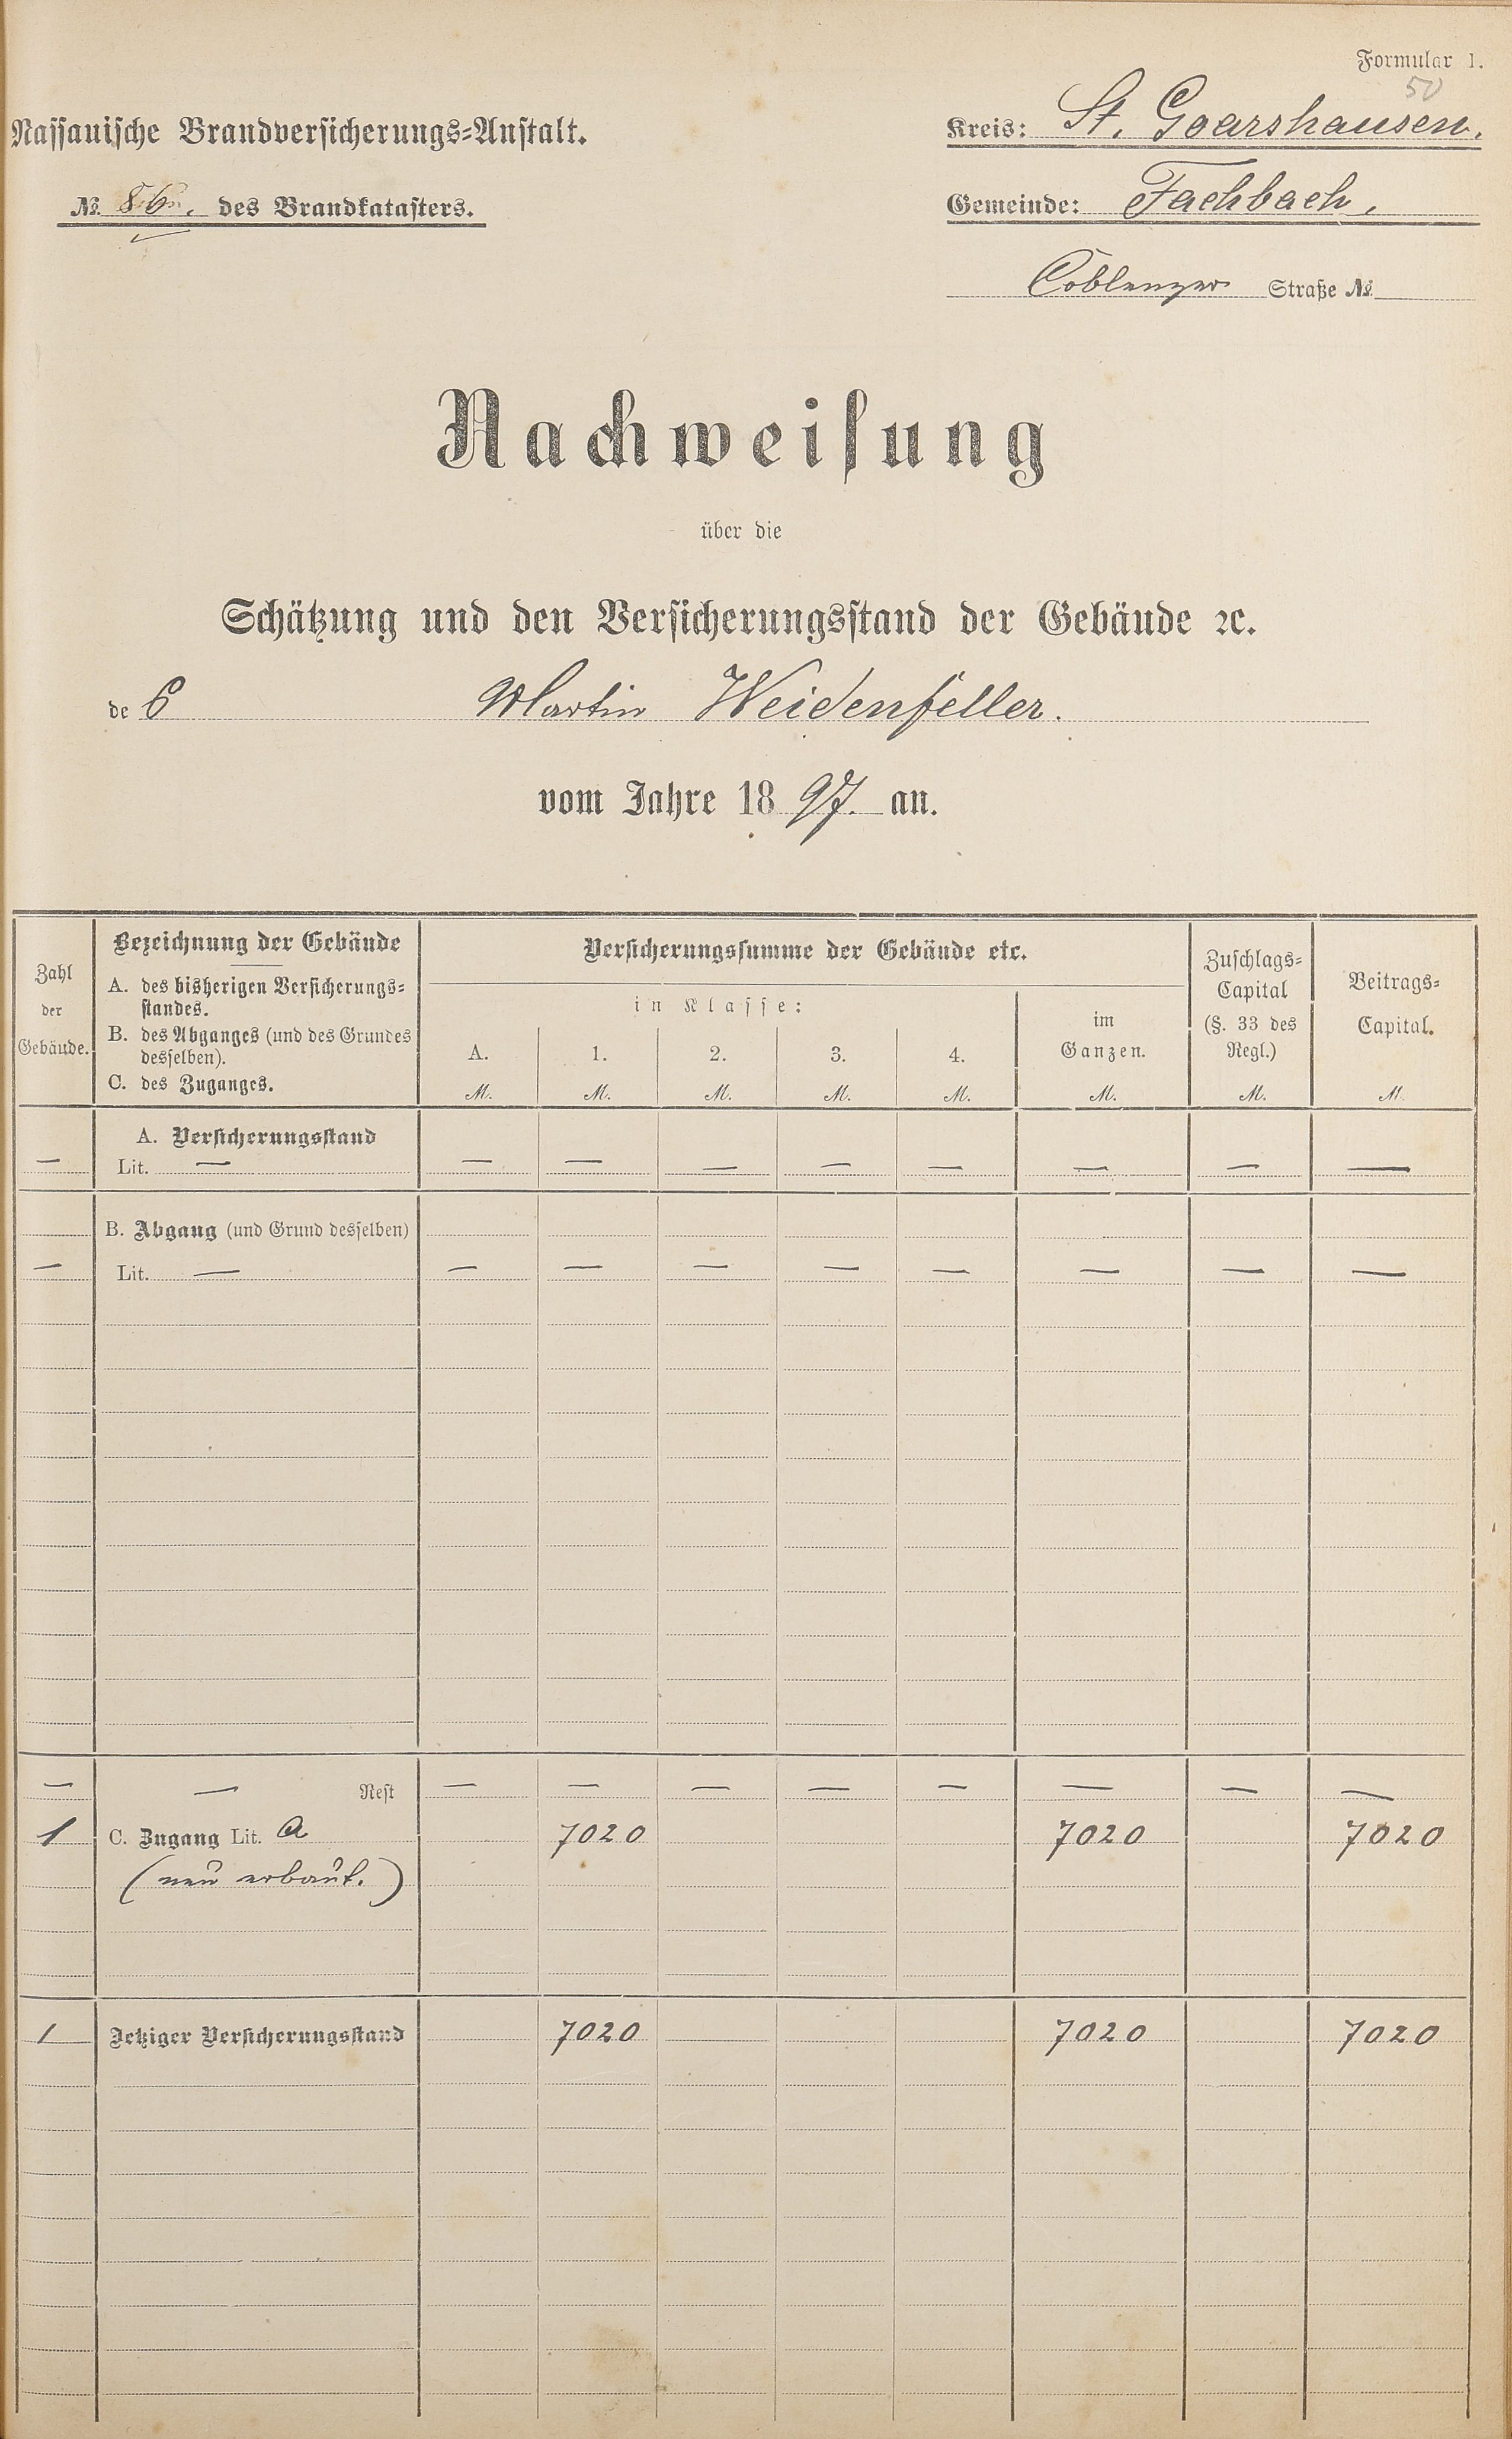 Formular 1.
50
Nassauische Brandversicherungs-Anstalt.
Kreis: St. Goarshausen.
№ des Brandkatasters.
Gemeinde: Fachbach,
Coblenzer Straße №
Nachweisung
über die
Schätzung und den Versicherungsstand der Gebäude ꝛc.
des Martin Weidenfeller.
vom Jahre 1897. an.
Zahl der Gebäude.
Bezeichnung der Gebäude
A. des bisherigen Versicherungs-
standes.
B. des Abganges (und des Grundes
desselben).
C. des Zuganges.
Versicherungssumme der Gebäude etc.
in Klasse:
A. 1. 2. 3. 4.
im
Ganzen.
Zuschlags-
Capital
(§. 33 des
Regl.)
Beitrags-
Capital.
M. M. M. M. M. M. M. M.
A. Versicherungsstand
— Lit. — — — — — — — — —
B. Abgang (und Grund desselben)
— Lit. — — — — — — — — —
— — Rest — — — — — — — —
1 C. Zugang Lit. a 7020 7020 7020
(neu erbaut.)
1 Jetziger Versicherungsstand 7020 7020 7020